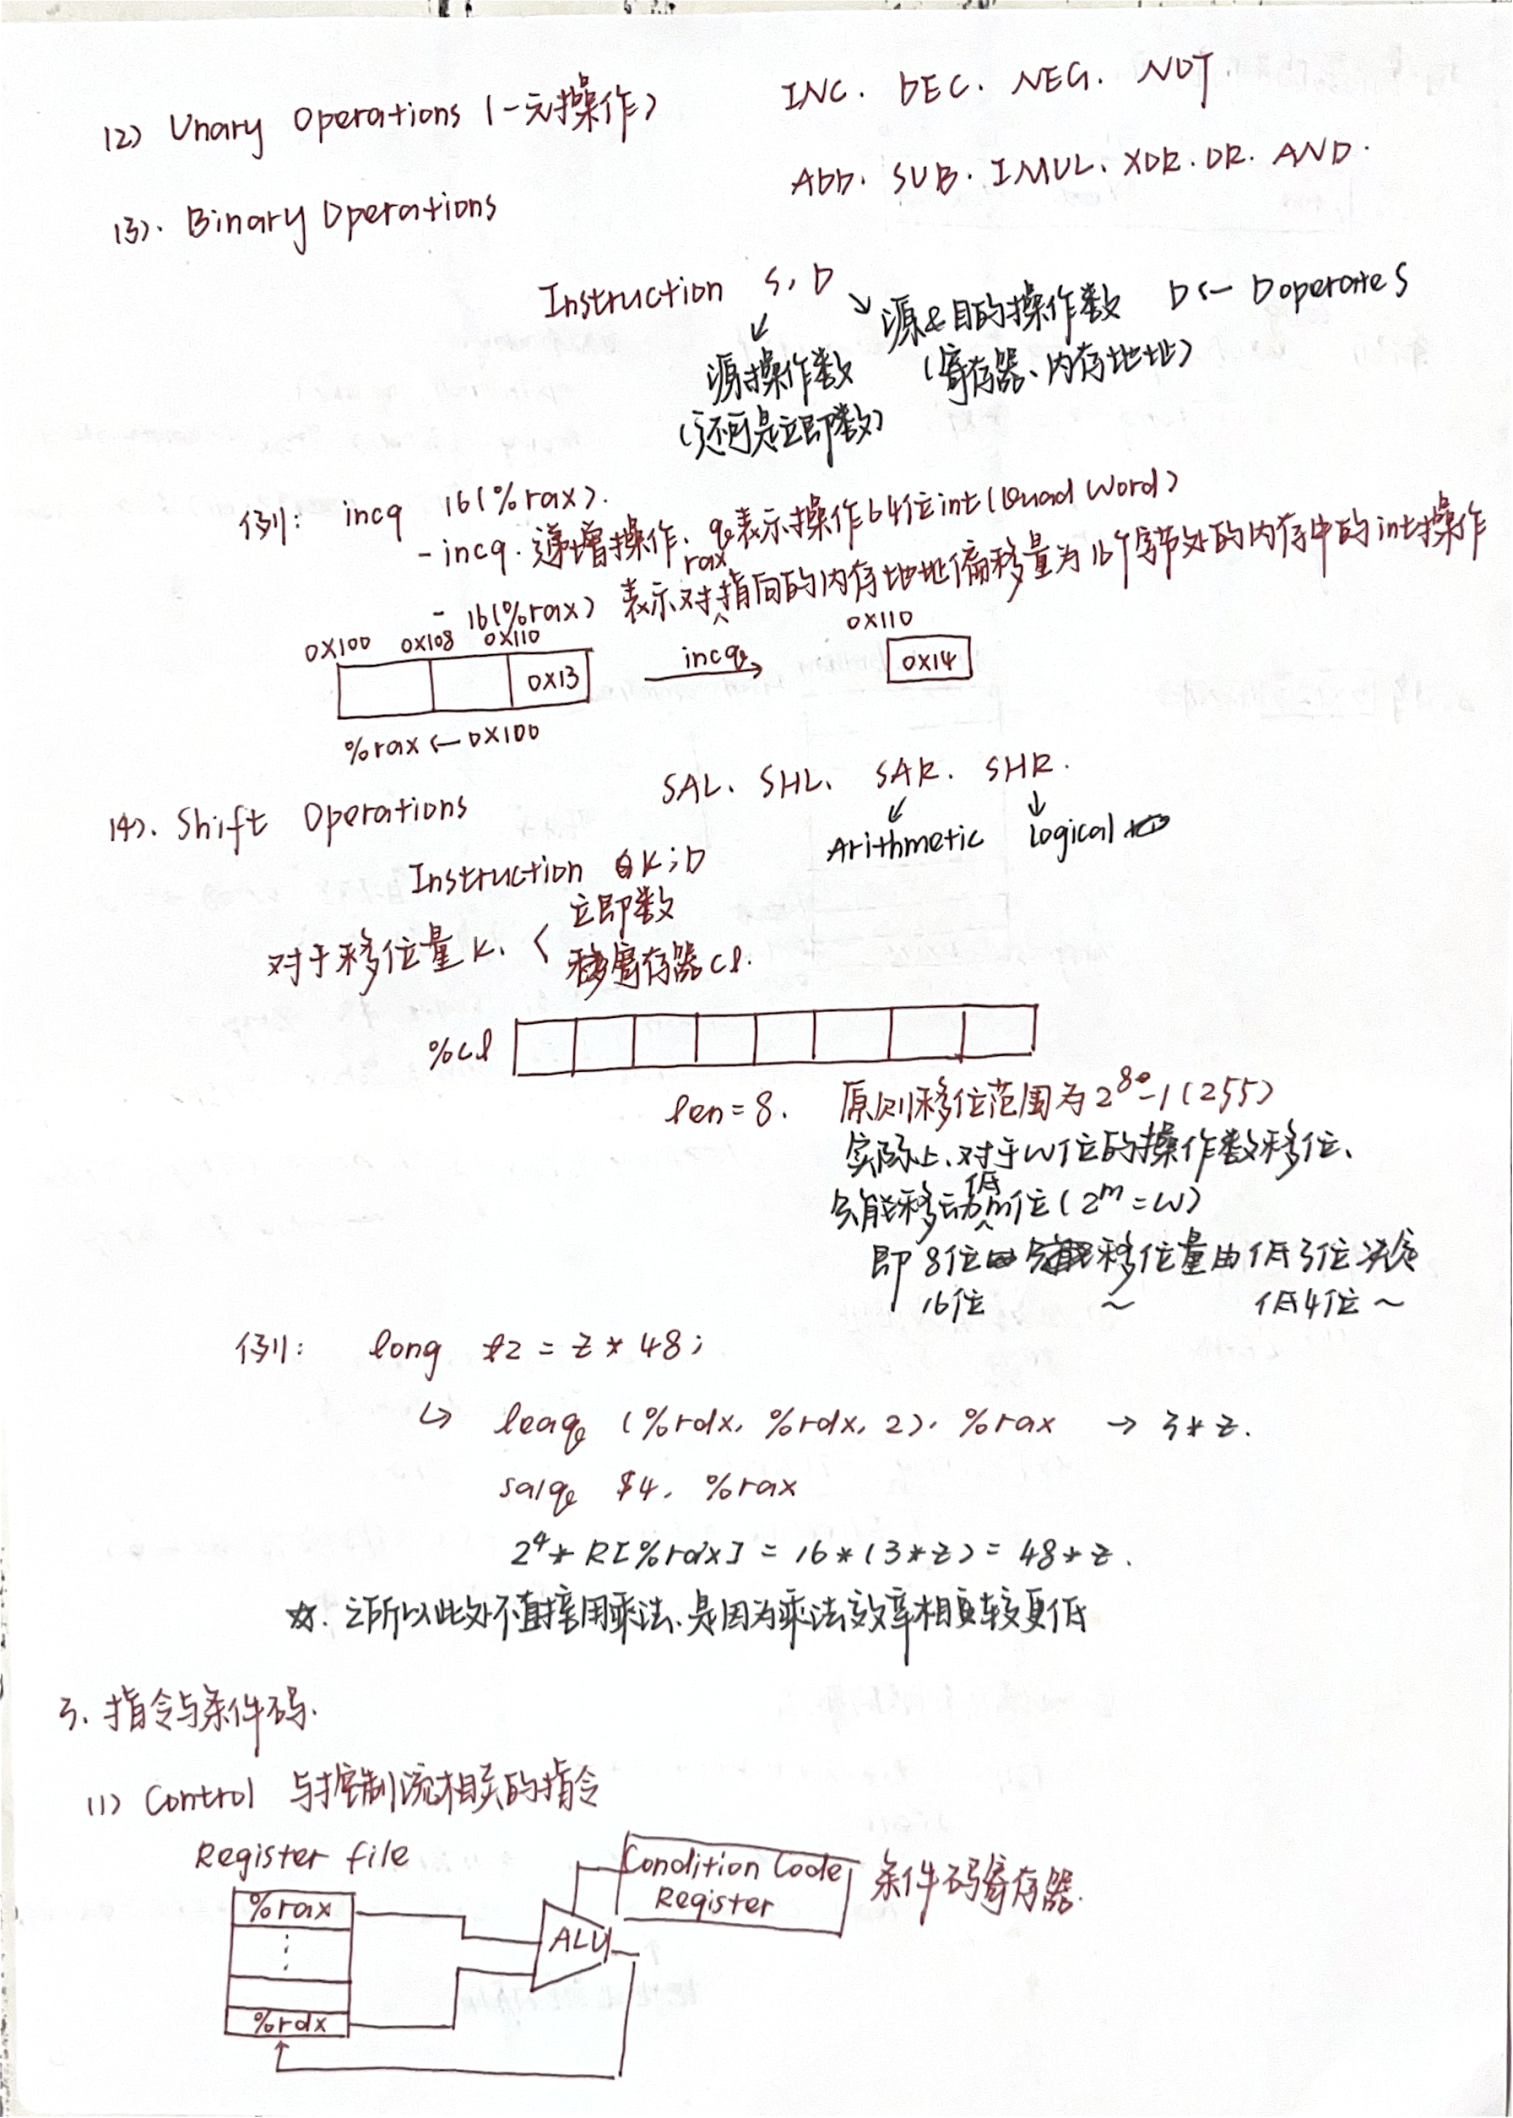 (2) Unary Operations (一元操作) INC. DEC. NEG. NOT
(3). Binary Operations ADD. SUB. IMUL. XOR. OR. AND.
Instruction S, D
源&目的操作数 D<- D operate S
源操作数 (寄存器、内存地址)
(还可是立即数)
例: incq 16(%rax).
- incq. 递增操作、q表示操作64位int(Quad Word)
- 16(%rax) 表示对rax指向的内存地址偏移量为16个字节处的内存中的int操作
0X100 0X108 0X110 0X110
0X13 incq 0X14
%rax <- 0X100
(4). Shift Operations SAL、SHL、SAR. SHR.
Arithmetic Logical
Instruction K; D
立即数
对于移位量K、<
寄存器cl.
%cl
len=8. 原则移位范围为2^8-1(255)
实际上、对于w位的操作数移位、
只能移动低m位(2^m=w)
即 8位 移位量由低3位决定
16位 ~ 低4位~
例: long t2 = z * 48;
↳ leaq (%rdx, %rdx, 2), %rax → 3*z.
salq $4, %rax
2^4 * R[%rax] = 16*(3*z) = 48*z.
☆. 之所以此处不直接用乘法、是因为乘法效率相较更低
3. 指令与条件码.
(1) Control 与控制流相关的指令
Register file
Condition Code 条件码寄存器.
Register
%rax
ALU
%rdx